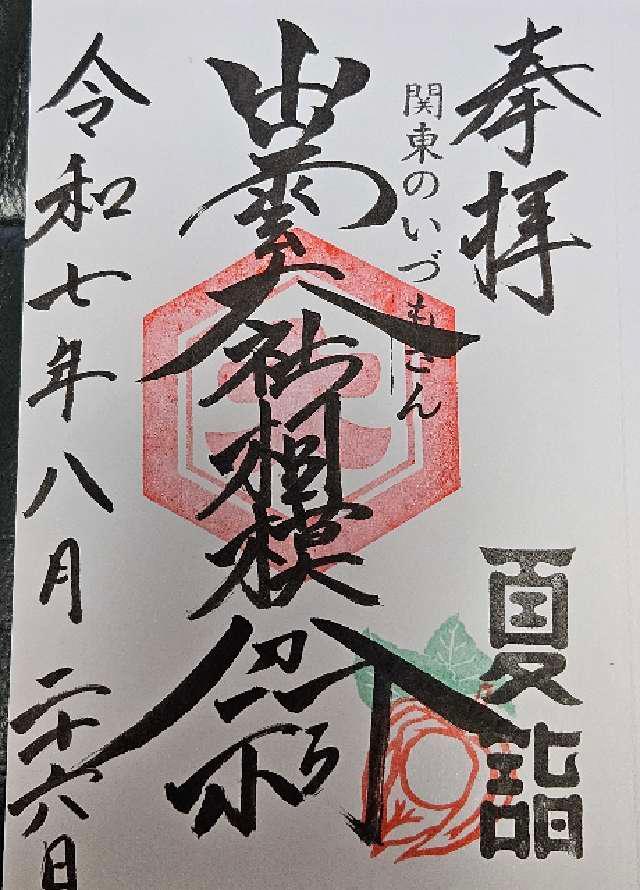 奉拝
夏詣
関東のいづもさん
出雲大社相模分祠
令和七年八月二十六日